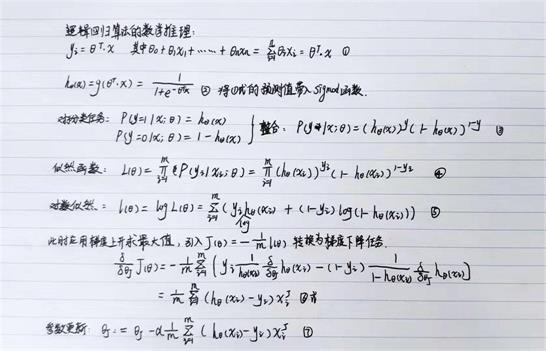 逻辑回归算法的数学推理:
yᵢ = θᵀ·x 其中θ₀+θ₁x₁+……+θₙxₙ = Σᵢ₌₁ⁿ θᵢxᵢ = θᵀ·x ①
h_θ(x) = g(θᵀ·x) = 1/(1+e^(-θᵀx)) ② 将①式的预测值带入Sigmod函数.
对分类任务: P(y=1|x;θ) = h_θ(x)
P(y=0|x;θ) = 1-h_θ(x) } 整合: P(y|x;θ) = (h_θ(x))^y (1-h_θ(x))^(1-y) ③
似然函数: L(θ) = ∏ᵢ₌₁ᵐ P(yᵢ|xᵢ;θ) = ∏ᵢ₌₁ᵐ (h_θ(xᵢ))^yᵢ (1-h_θ(xᵢ))^(1-yᵢ) ④
对数似然: l(θ) = log L(θ) = Σᵢ₌₁ᵐ (yᵢ log h_θ(xᵢ) + (1-yᵢ) log(1-h_θ(xᵢ))) ⑤
此时应用梯度上升求最大值, 引入 J(θ) = -1/m l(θ) 转换为梯度下降任务.
δ/δθⱼ J(θ) = -1/m Σᵢ₌₁ᵐ [yᵢ 1/h_θ(xᵢ) δ/δθⱼ h_θ(xᵢ) - (1-yᵢ) 1/(1-h_θ(xᵢ)) δ/δθⱼ h_θ(xᵢ)]
= 1/m Σᵢ₌₁ᵐ (h_θ(xᵢ)-yᵢ) xᵢʲ ⑥
参数更新: θⱼ := θⱼ - α 1/m Σᵢ₌₁ᵐ (h_θ(xᵢ)-yᵢ) xᵢʲ ⑦